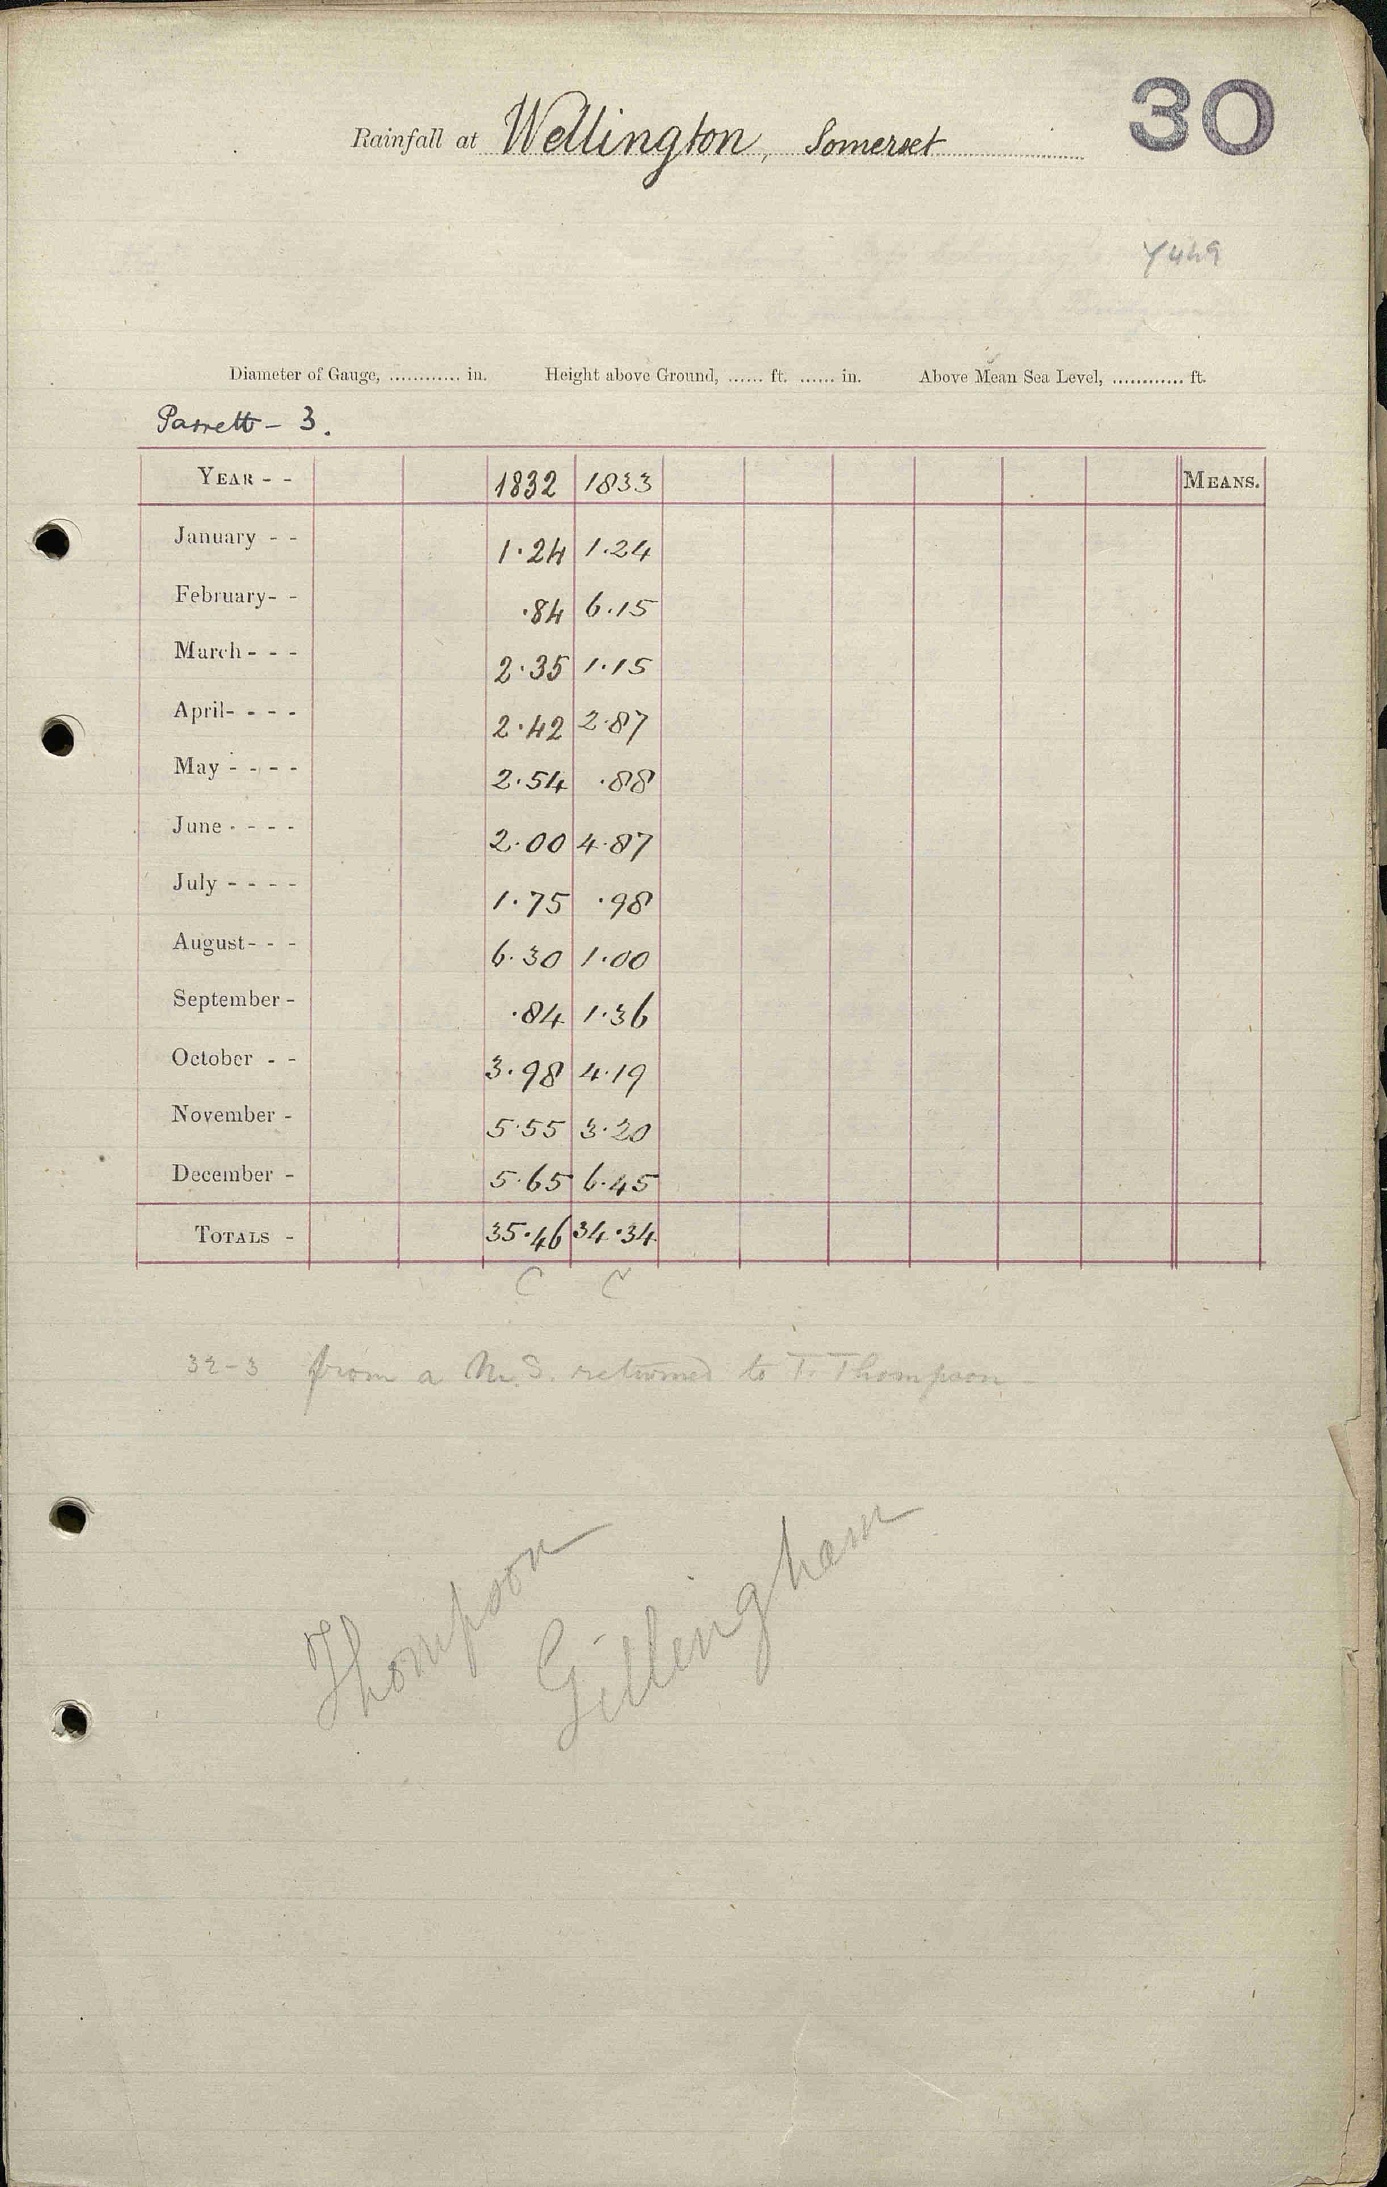 30
Rainfall at Wellington, Somerset
Diameter of Gauge, ............ in. Height above Ground, ...... ft. ...... in. Above Mean Sea Level, ............ ft.
Parrett - 3.
YEAR - - 1832 1833 MEANS.
January - - 1.24 1.24
February- - .84 6.15
March - - - 2.35 1.15
April- - - - 2.42 2.87
May - - - - 2.54 .88
June - - - - 2.00 4.87
July - - - - 1.75 .98
August- - - 6.30 1.00
September - .84 1.36
October - - 3.98 4.19
November - 5.55 3.20
December - 5.65 6.45
TOTALS - 35.46 34.34
C C
32-3 from a M.S. returned to T. Thompson
Thompson
Gillingham